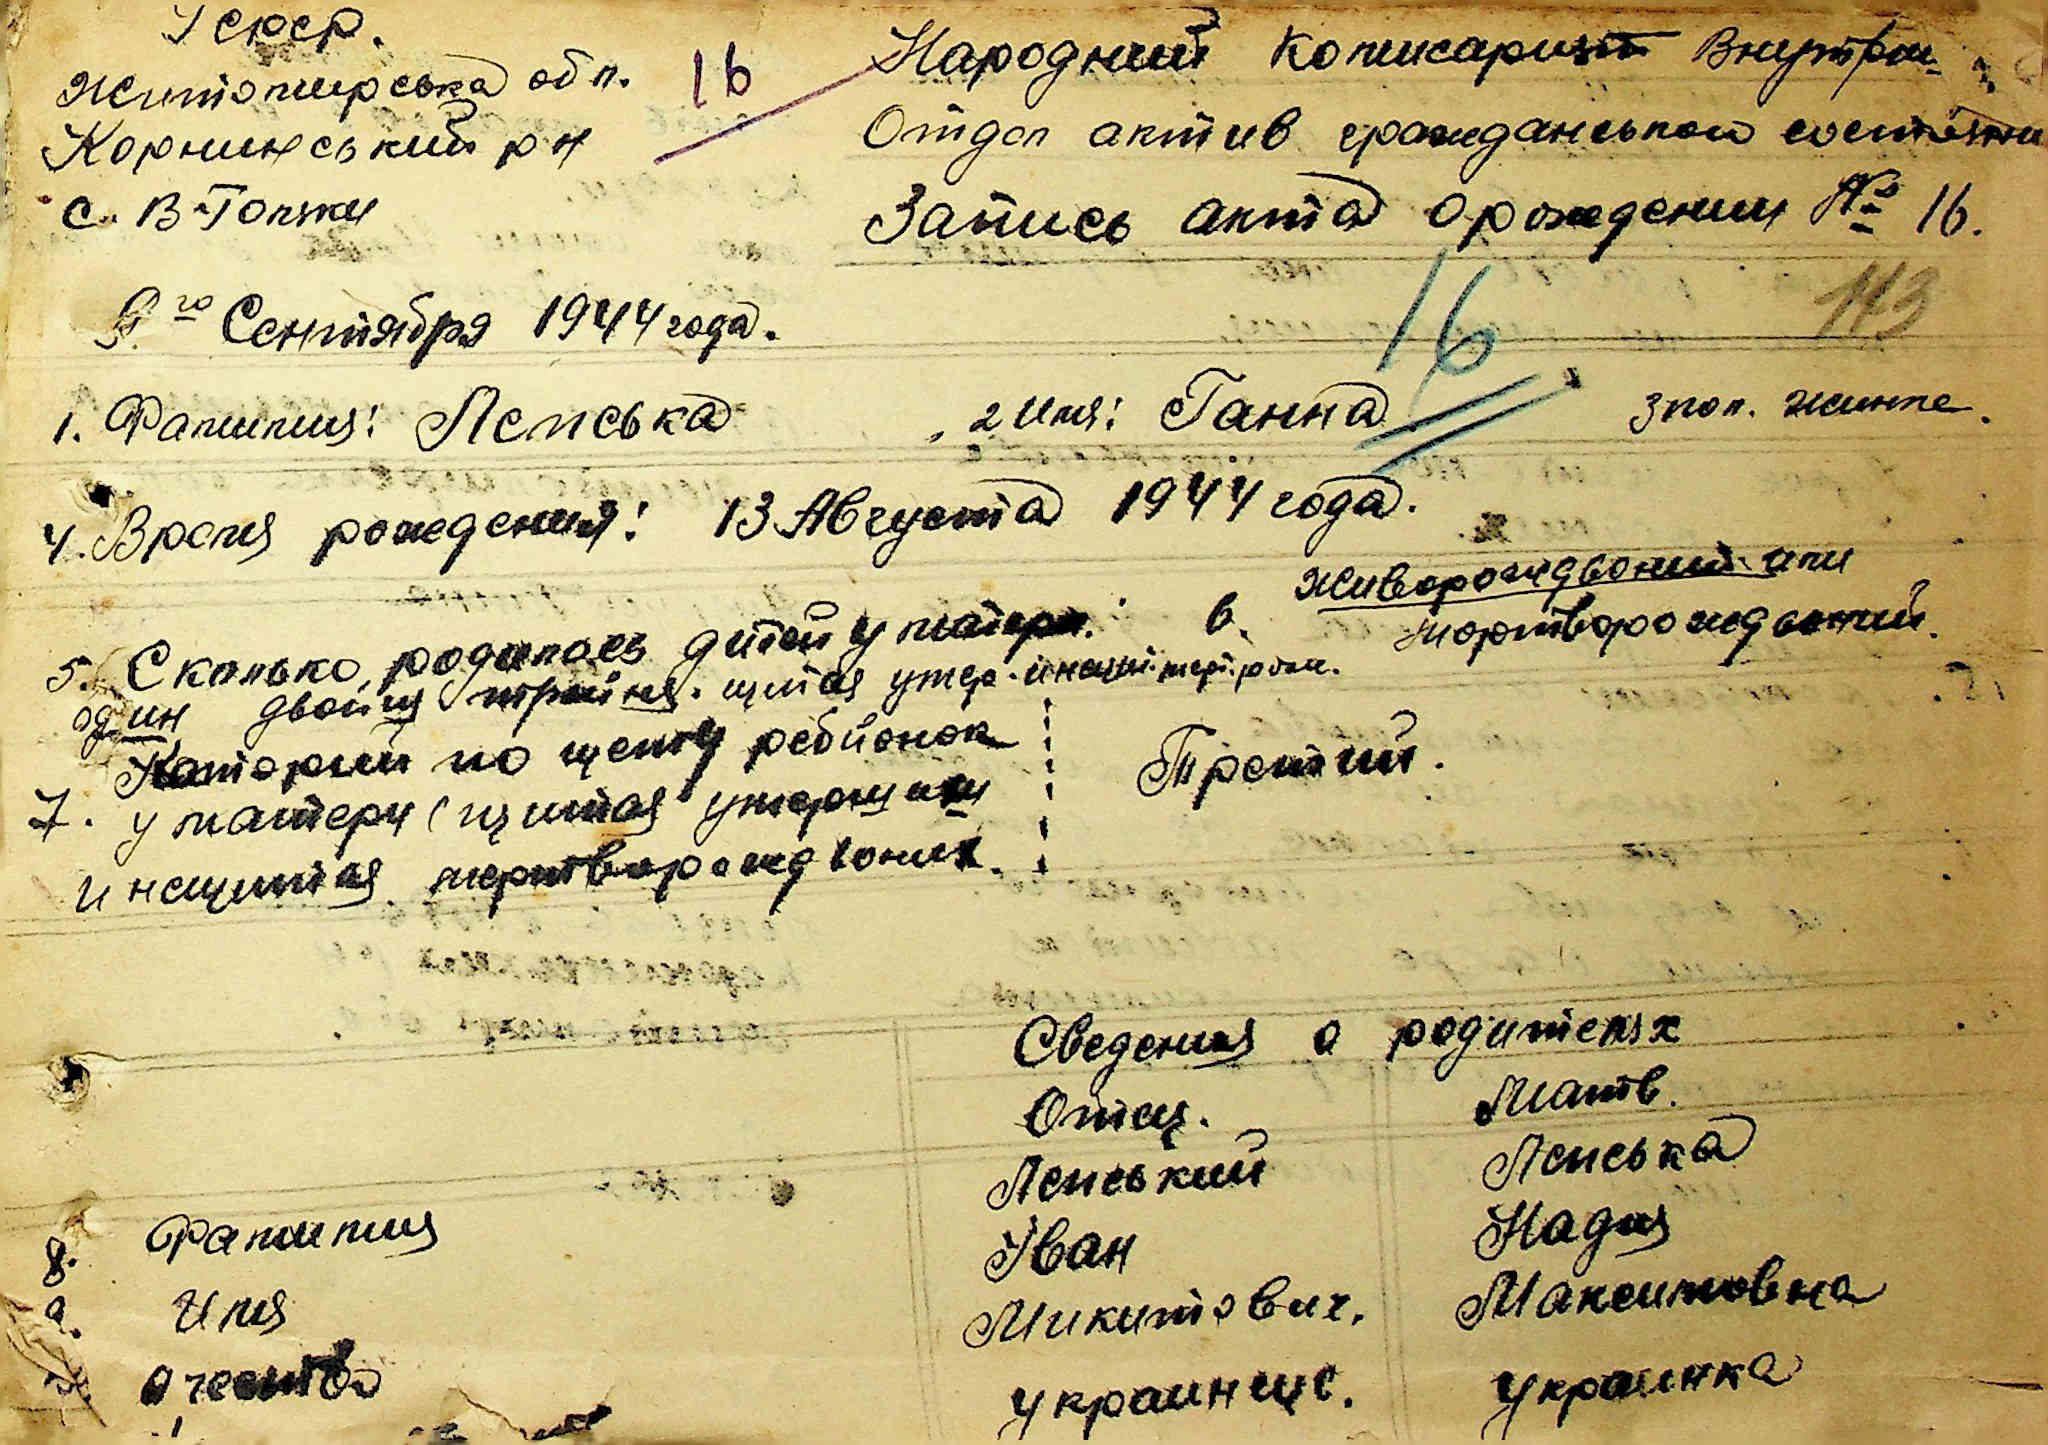 Усрср.
Житомирська обл.
Корнинський рн
с. В-Голяки
16
Народний Комисариат Внутрен.
Отдел актив гражданськой состояни
Запись акта о рождении № 16.
16
113
9го Сентября 1944 года.
1. Фамилия: Ленська
2 Имя: Ганна
3 пол. жинке.
4. Время рождения: 13 Августа 1944 года.
5. Сколько родилось дитей у матери.
один двойня тройня. щитая умер. и нещит. мерт. рожд.
6. Живорождьоний или
мортворождьоний.
7. Который по щету ребйонок
у матери (щитая умерших
и нещитая мертворождьоних.
Третий.
Сведения о родителях
Отец. Мать.
8. Фамилия Ленський Ленська
а. Имя Іван Надия
Очество Микитович. Максимовна
украинец. украинка